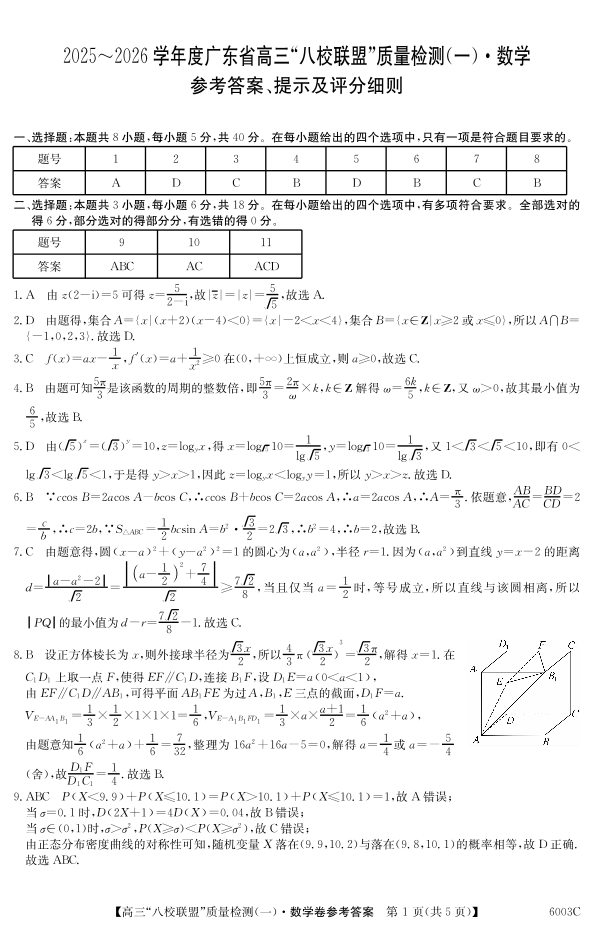 2025～2026学年度广东省高三“八校联盟”质量检测(一)·数学
参考答案、提示及评分细则
一、选择题:本题共8小题,每小题5分,共40分。在每小题给出的四个选项中,只有一项是符合题目要求的。
题号 1 2 3 4 5 6 7 8
答案 A D C B D B C B
二、选择题:本题共3小题,每小题6分,共18分。在每小题给出的四个选项中,有多项符合要求。全部选对的
得6分,部分选对的得部分分,有选错的得0分。
题号 9 10 11
答案 ABC AC ACD
1. A 由 z(2-i)=5可得 z=5/(2-i),故|z̄|=|z|=5/√5,故选 A.
2. D 由题得,集合 A={x|(x+2)(x-4)<0}={x|-2<x<4},集合 B={x∈Z|x≥2或 x≤0},所以 A∩B=
{-1,0,2,3}.故选 D.
3. C f(x)=ax-1/x,f′(x)=a+1/x²≥0在(0,+∞)上恒成立,则 a≥0,故选 C.
4. B 由题可知5π/3是该函数的周期的整数倍,即5π/3=2π/ω×k,k∈Z 解得 ω=6k/5,k∈Z,又 ω>0,故其最小值为
6/5,故选 B.
5. D 由(√5)ˣ=(√3)ʸ=10,z=logᵧx,得 x=log√5 10=1/lg√5,y=log√3 10=1/lg√3,又1<√3<√5<10,即有0<
lg√3<lg√5<1,于是得 y>x>1,因此 z=logᵧx<logᵧy=1,所以 y>x>z.故选 D.
6. B ∵ccos B=2acos A-bcos C,∴ccos B+bcos C=2acos A,∴a=2acos A,∴A=π/3.依题意,AB/AC=BD/CD=2
=c/b,∴c=2b,∵S△ABC=1/2bcsin A=b²·√3/2=2√3,∴b²=4,∴b=2,故选 B.
7. C 由题意得,圆(x-a)²+(y-a²)²=1的圆心为(a,a²),半径 r=1.因为(a,a²)到直线 y=x-2的距离
d=|a-a²-2|/√2=|(a-1/2)²+7/4|/√2≥7√2/8,当且仅当 a=1/2时,等号成立,所以直线与该圆相离,所以
|PQ|的最小值为 d-r=7√2/8-1.故选 C.
8. B 设正方体棱长为 x,则外接球半径为√3x/2,所以4/3π(√3x/2)³=√3π/2,解得 x=1.在
C₁D₁ 上取一点 F,使得 EF∥C₁D,连接 B₁F,设 D₁E=a(0<a<1),
由 EF∥C₁D∥AB₁,可得平面 AB₁FE 为过 A,B₁,E 三点的截面,D₁F=a.
V E-AA₁B₁=1/3×1/2×1×1×1=1/6,V E-A₁B₁FD₁=1/3×a×(a+1)/2=1/6(a²+a),
由题意知1/6(a²+a)+1/6=7/32,整理为16a²+16a-5=0,解得 a=1/4或 a=-5/4
(舍),故D₁F/D₁C₁=1/4.故选 B.
D₁ F C
A B₁
E
D C
A B
9. ABC P(X<9.9)+P(X≤10.1)=P(X>10.1)+P(X≤10.1)=1,故 A 错误;
当 σ=0.1时,D(2X+1)=4D(X)=0.04,故 B 错误;
当 σ∈(0,1)时,σ>σ²,P(X≥σ)<P(X≥σ²),故 C 错误;
由正态分布密度曲线的对称性可知,随机变量 X 落在(9.9,10.2)与落在(9.8,10.1)的概率相等,故 D 正确.
故选 ABC.
【高三“八校联盟”质量检测(一)·数学卷参考答案 第1页(共5页)】 6003C